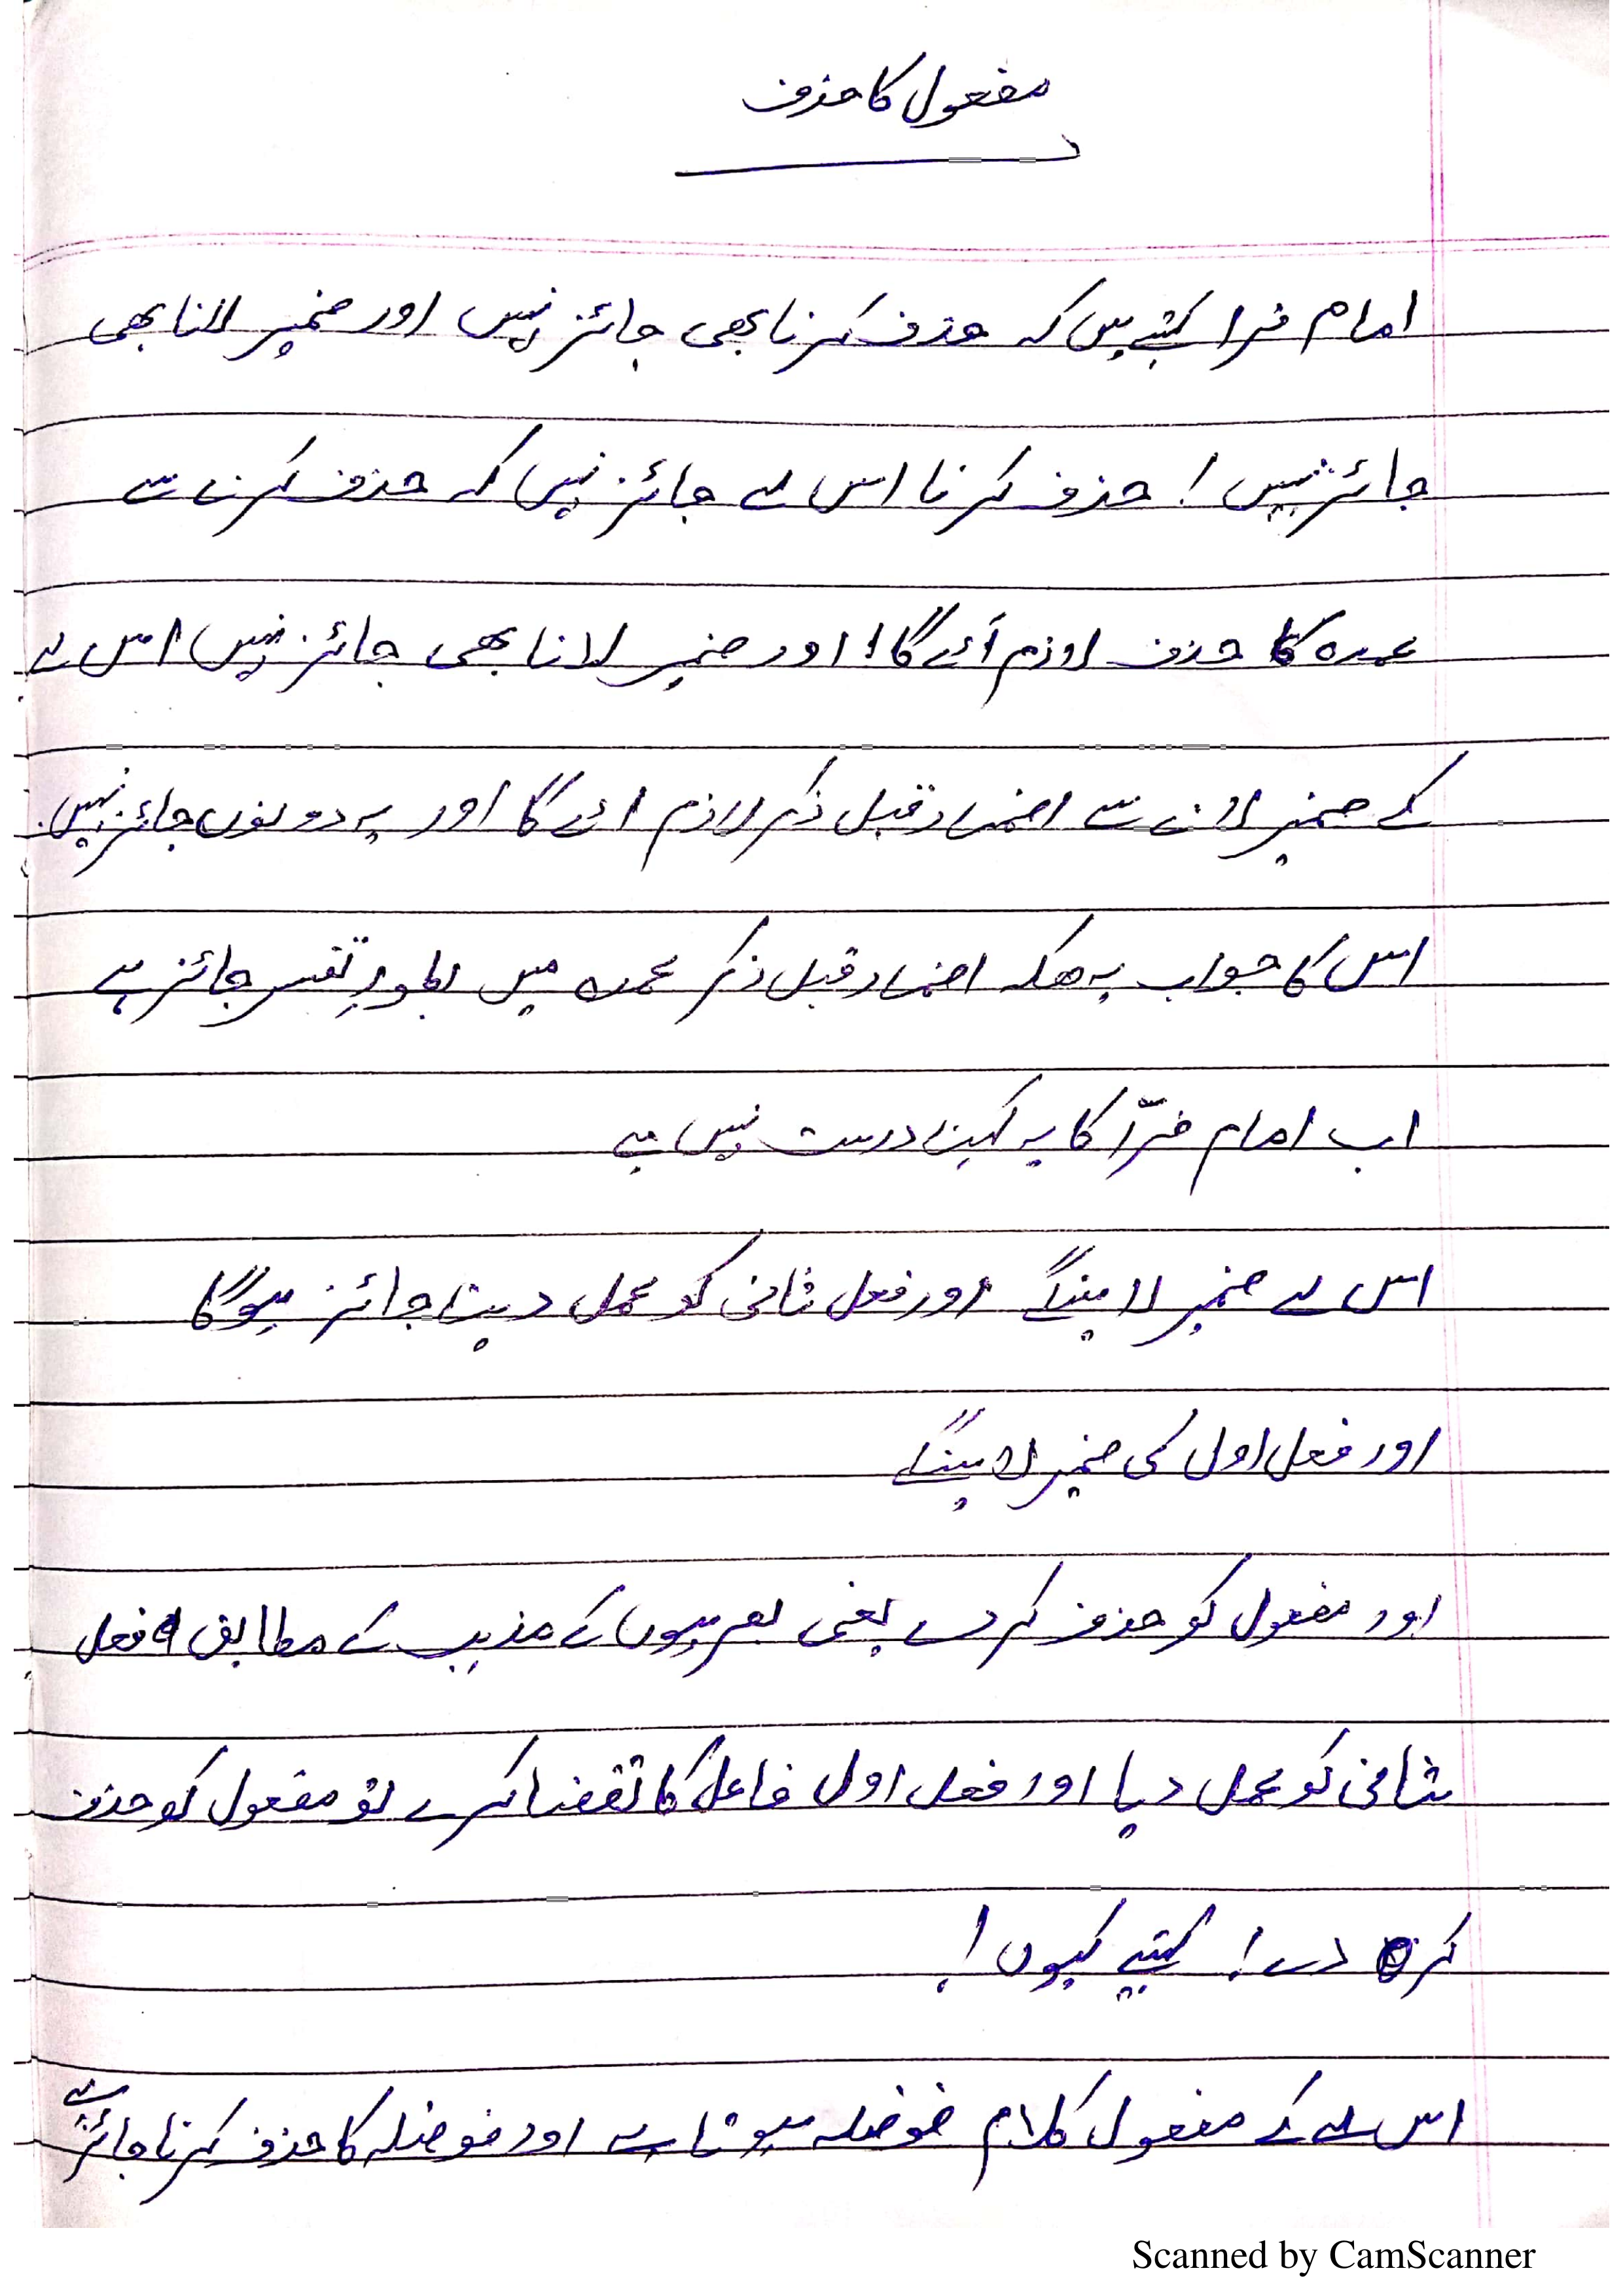 مفعول کا حذف
امام فرا کہتے ہیں کہ حذف کرنا بھی جائز نہیں اور ضمیر لانا بھی
جائز نہیں ! حذف کرنا اس لے جائز نہیں کہ حذف کرنے سے
عمدہ کا حذف لازم آئے گا! اور ضمیر لانا بھی جائز نہیں اس لے
کے ضمیر لانے سے اضمار قبل ذکر لازم ائے گا اور یہ دونوں جائز نہیں.
اس کا جواب یہ ھیکہ اضمار قبل ذکر عمدہ میں بطورِ تفسیر جائز ہے
اب امام فرّا کا یہ کہنا درست نہیں ہے
اس لے ضمیر لاینگے اور فعل ثانی کو عمل دینا جائز ہوگا
اور فعل اول کی ضمیر لاینگے
اور مفعول کو حذف کردے یعنی بصریوں کے مذہب کے مطابق فعل
ثانی کو عمل دیا اور فعل اول فاعل کا تقضا کرے تو مفعول کو حذف
کر دے! کہتے کیوں !
اس لے کے مفعول کلام فوضلہ ہوتا ہے اور فوضلہ کا حذف کرنا جائز ہے
Scanned by CamScanner